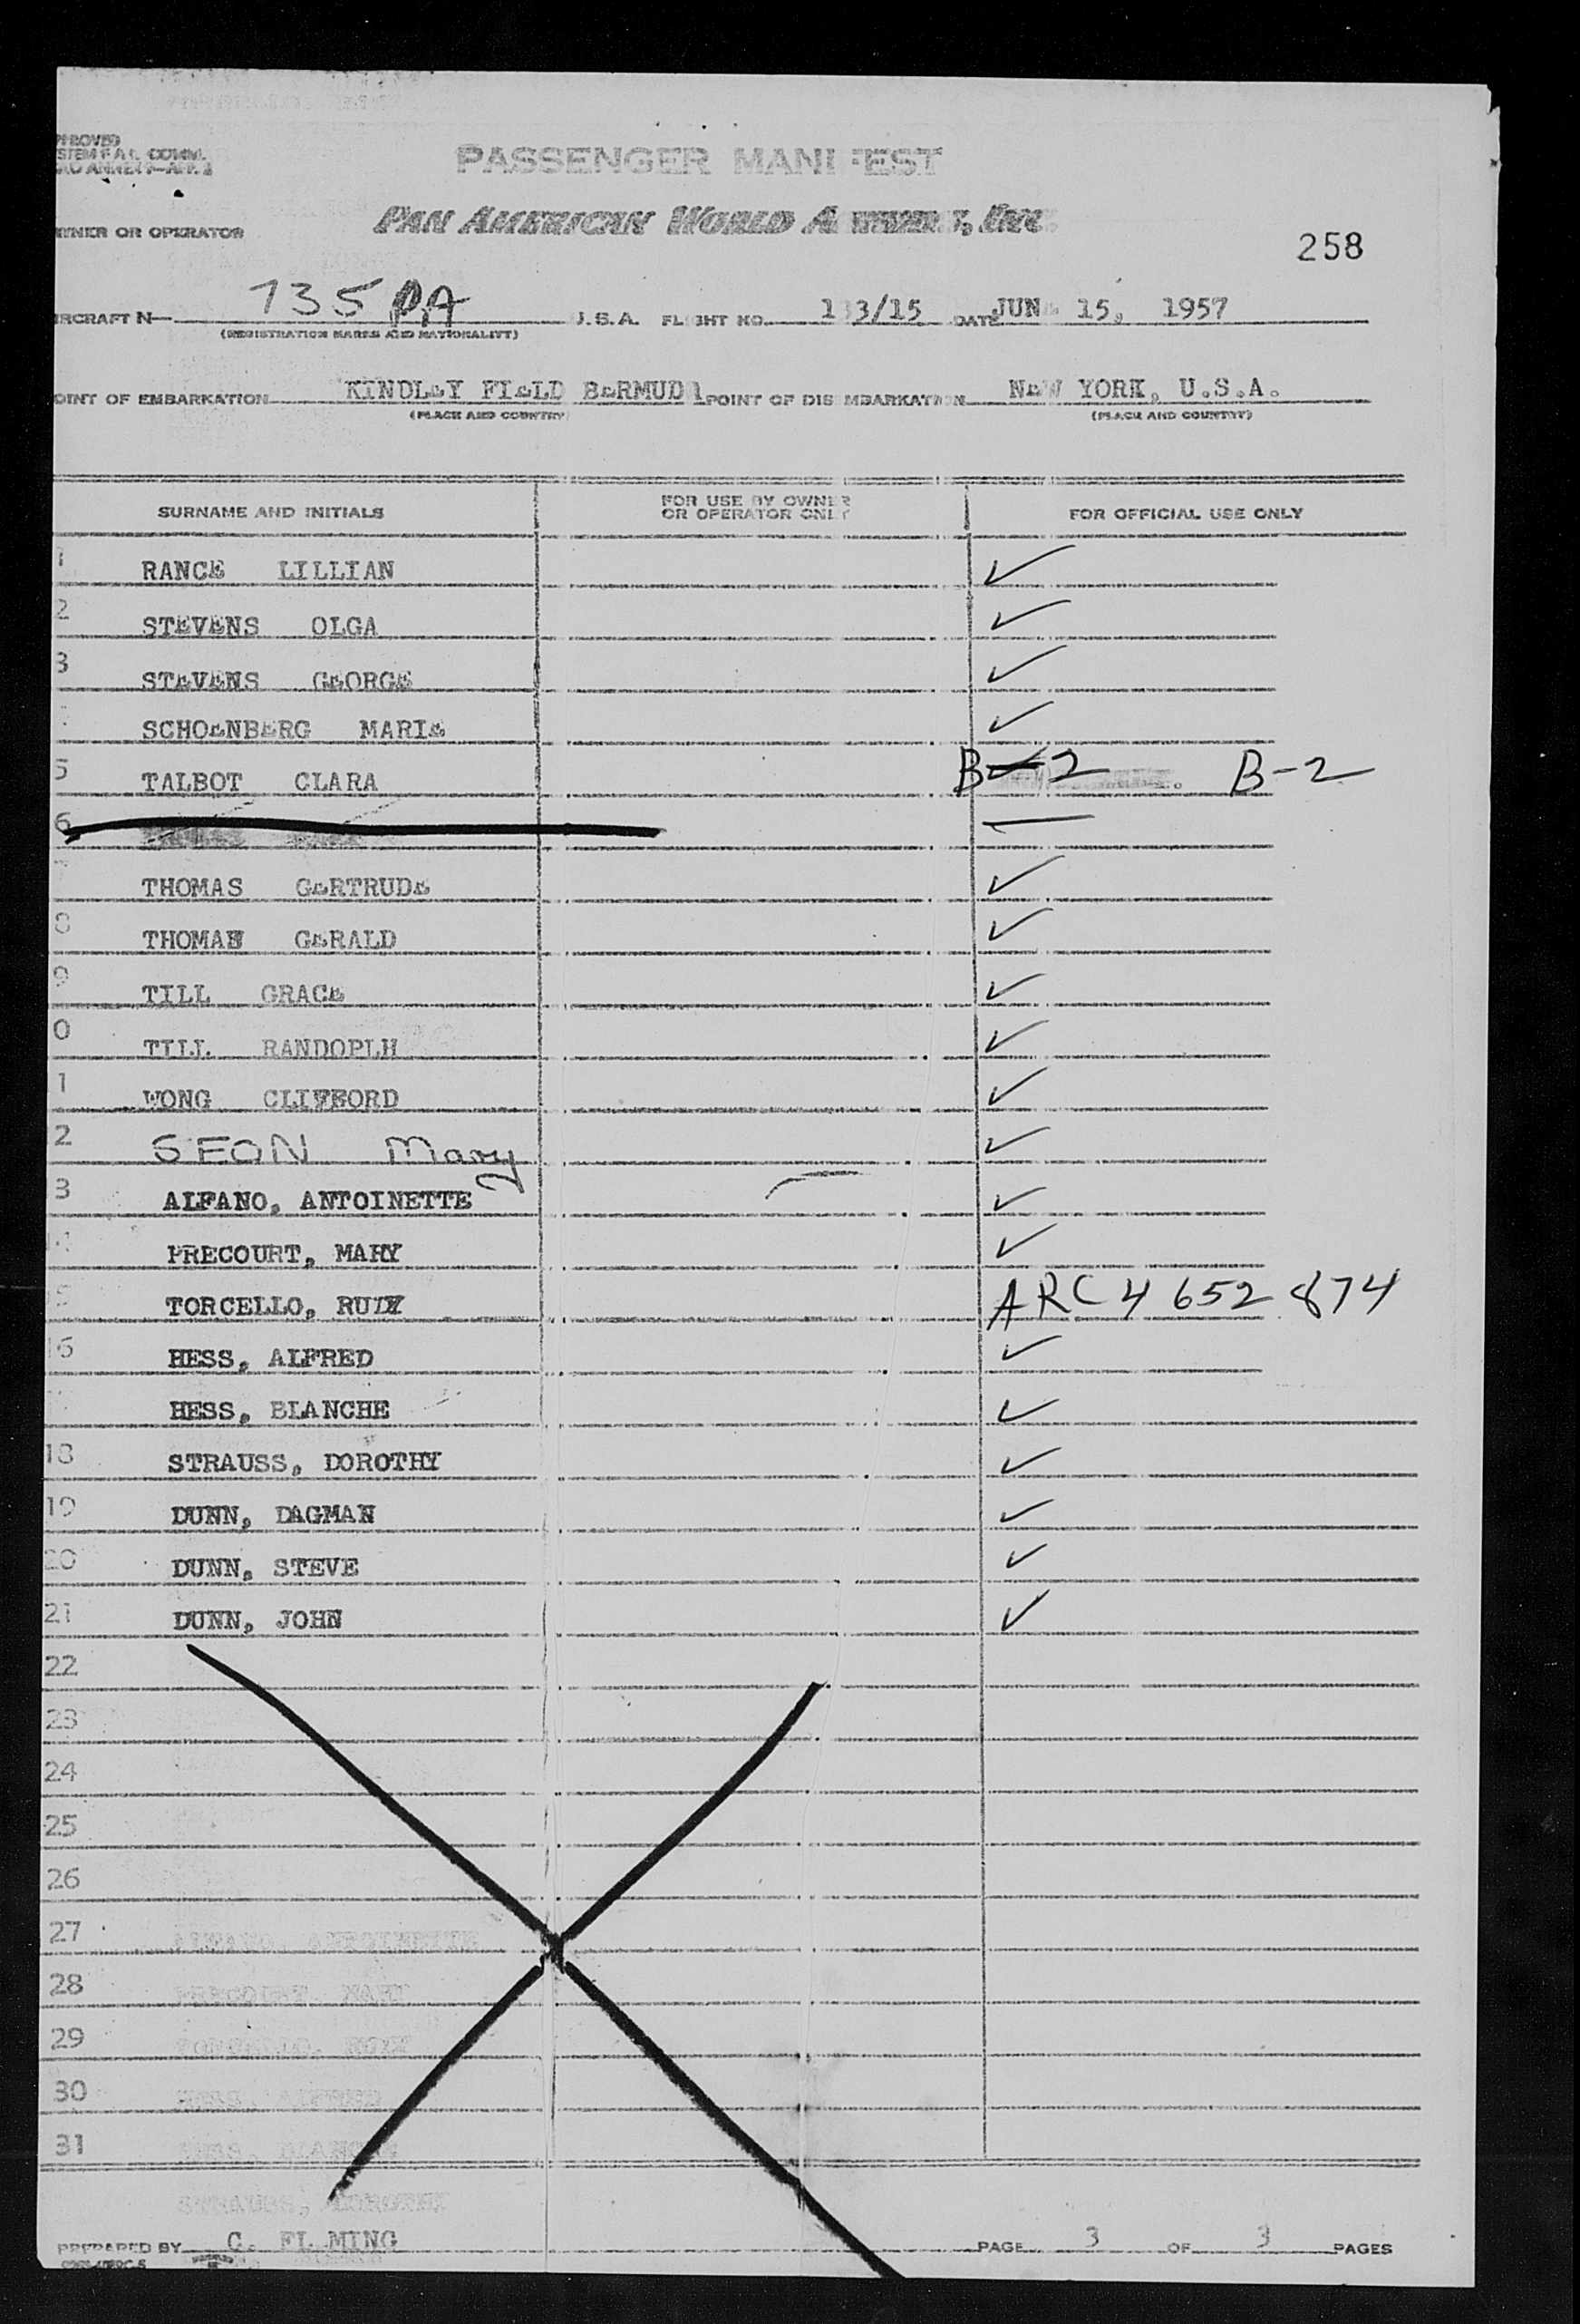 PASSENGER MANIFEST
OWNER OR OPERATOR
PAN AMERICAN WORLD AIRWAYS, INC.
258
AIRCRAFT N— 735PA U.S.A. FLIGHT NO. 133/15 DATE JUNE 15, 1957
(REGISTRATION MARKS AND NATIONALITY)
POINT OF EMBARKATION KINDLEY FIELD BERMUDA POINT OF DISEMBARKATION NEW YORK, U.S.A.
(PLACE AND COUNTRY) (PLACE AND COUNTRY)
SURNAME AND INITIALS FOR USE BY OWNER OR OPERATOR ONLY FOR OFFICIAL USE ONLY
1 RANCE LILLIAN ✓
2 STEVENS OLGA ✓
3 STEVENS GEORGE ✓
SCHOENBERG MARIE ✓
5 TALBOT CLARA B-2 B-2
6
THOMAS GERTRUDE ✓
8 THOMAS GERALD ✓
9 TILL GRACE ✓
0 TILL RANDOPLH ✓
1 WONG CLIFFORD ✓
2 SEON Mary ✓
3 ALFANO, ANTOINETTE ✓
PRECOURT, MARY ✓
5 TORCELLO, ARC 4 652 874
16 HESS, ALFRED ✓
HESS, BLANCHE ✓
18 STRAUSS, DOROTHY ✓
19 DUNN, DAGMAN ✓
20 DUNN, STEVE ✓
21 DUNN, JOHN ✓
22
23
24
25
26
27
28
29
30
31
PREPARED BY C. FLMING PAGE 3 OF 3 PAGES